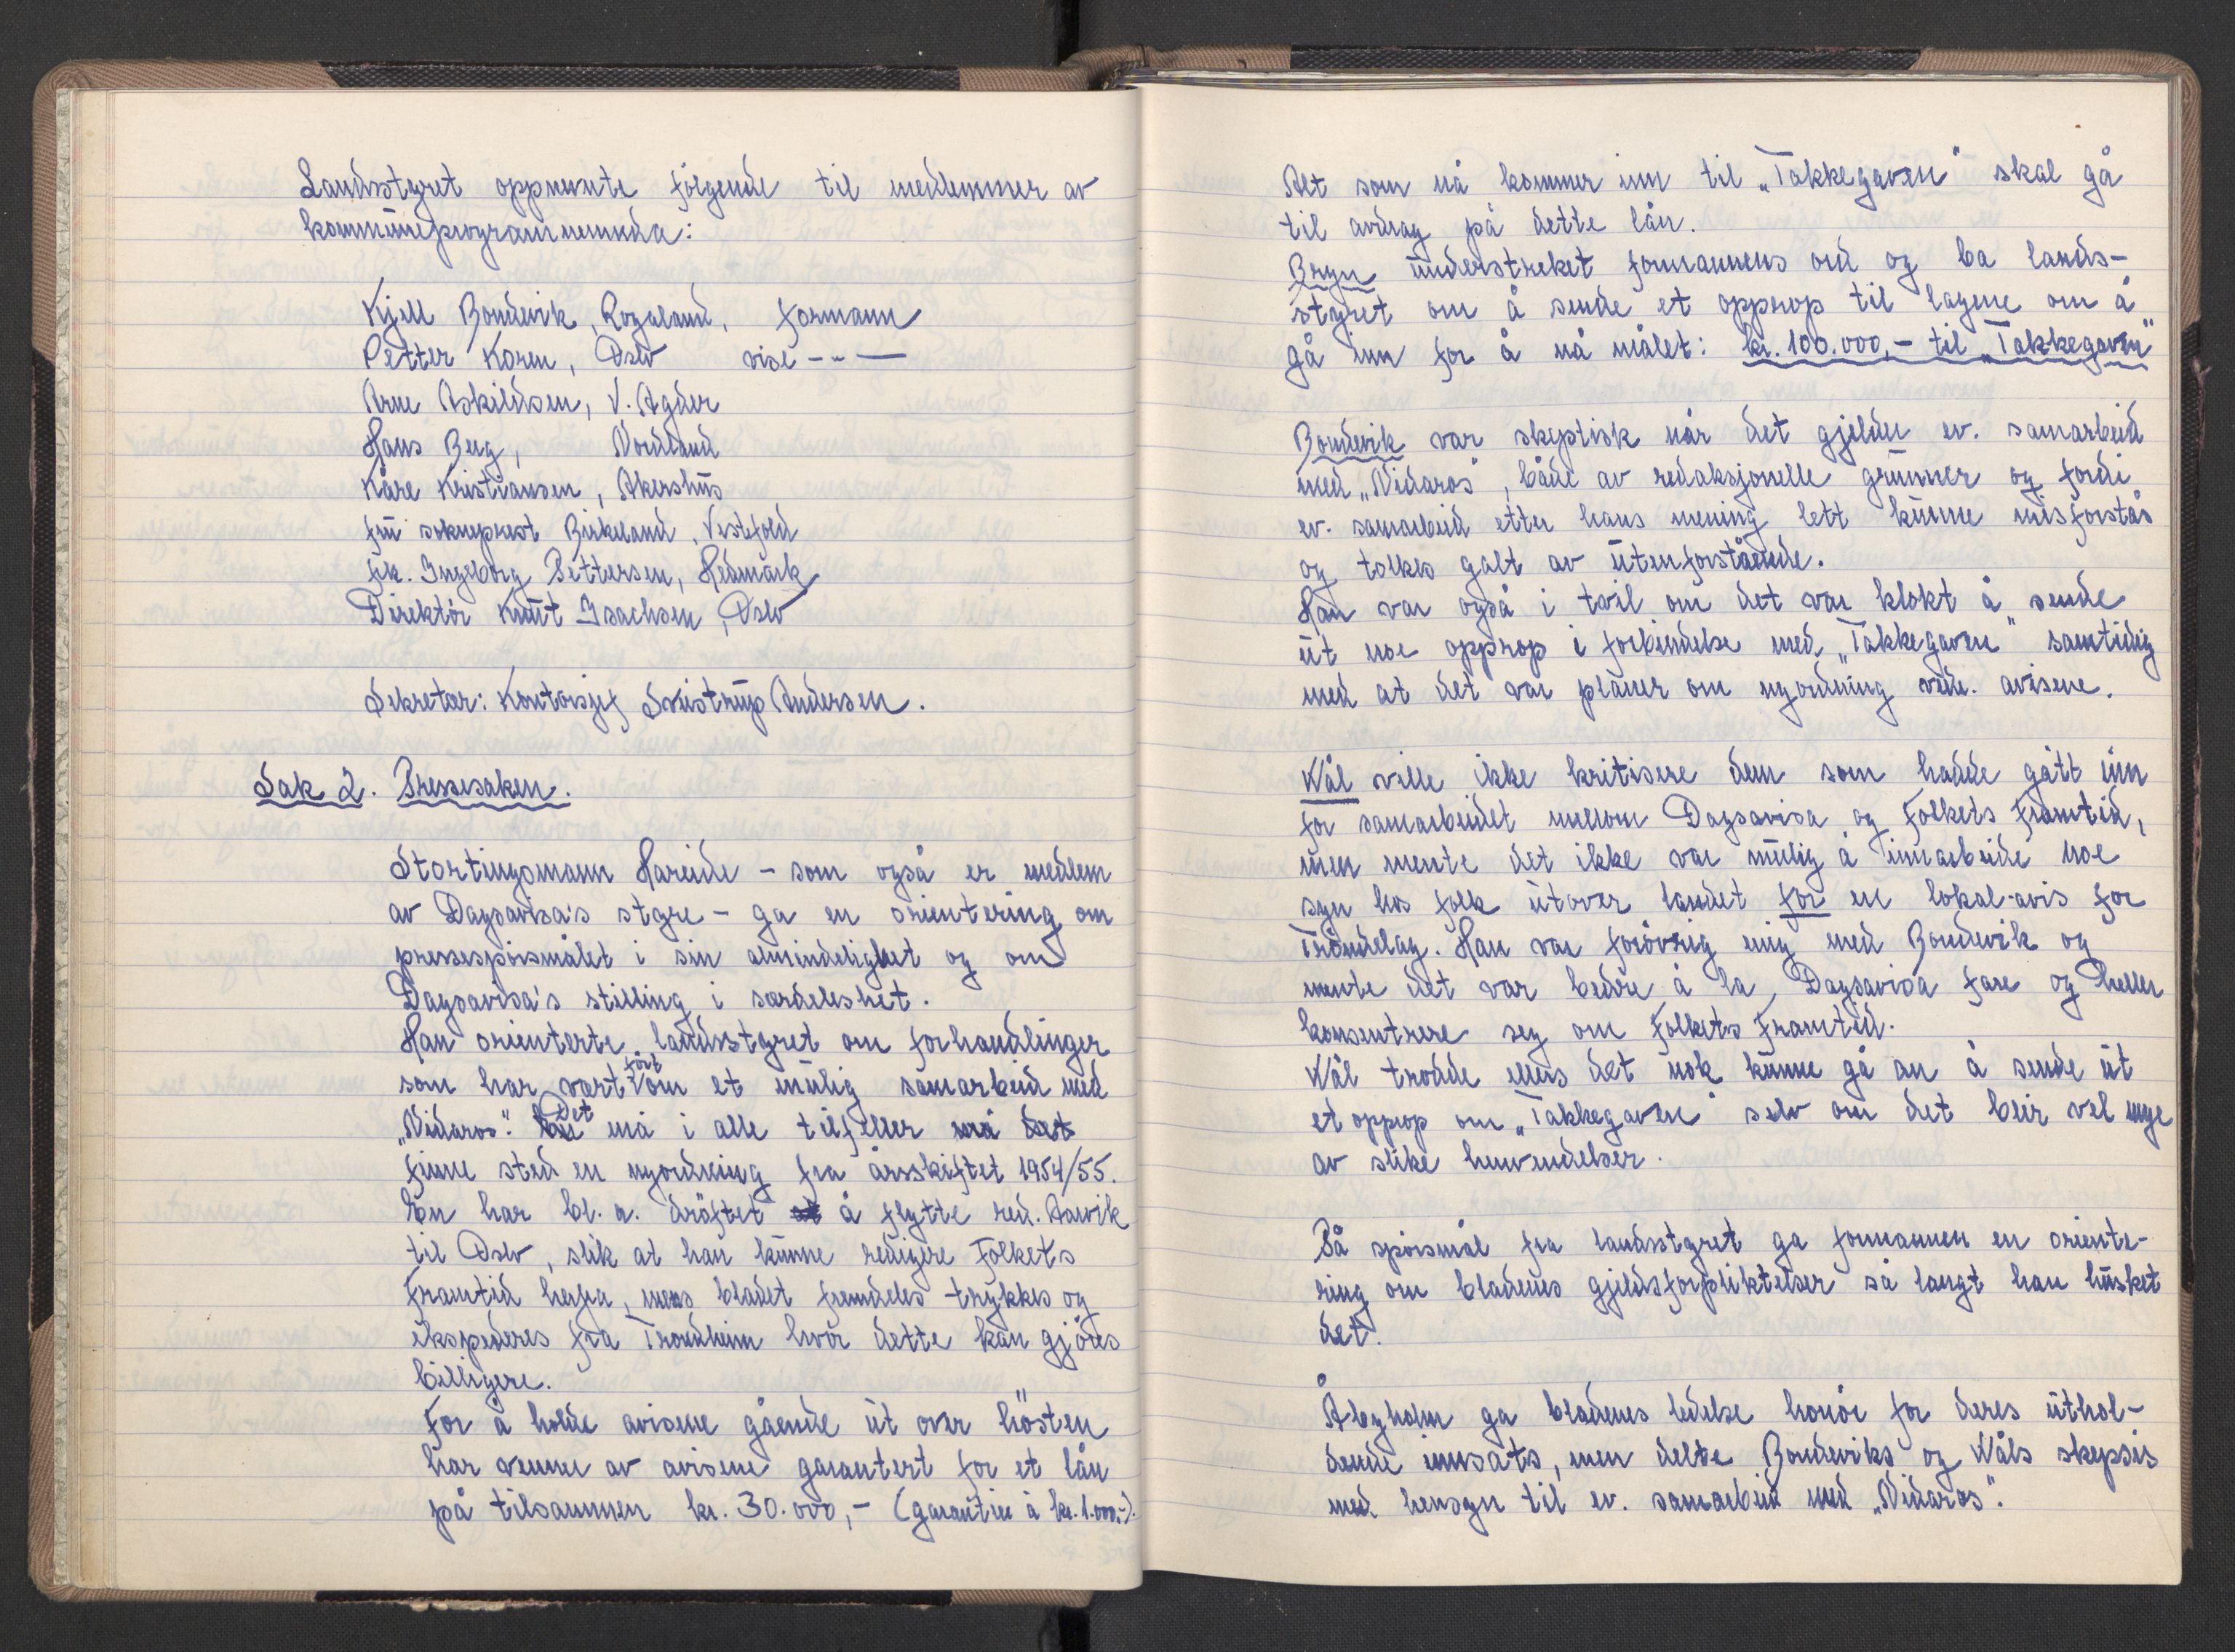 Landsstyret oppnevnte følgende til medlemmer av
kommuneprogramnemnda:
Kjell Bondevik, Rogaland, formann
Petter Koren, Oslo vise -"-
Arne Askildsen, V. Agder
Hans Berg, Nordland
Kåre Kristiansen, Akershus
fru sokneprest Birkeland, Vestfold
frk. Ingeborg Pettersen, Hedmark
Direktør Knut Isachsen, Oslo
Sekretær: Kontorsjef Sveistrup Andersen.
Sak 2. Pressesaken.
Stortingsmann Hareide - som også er medlem
av Dagsavisa's styre - ga en orientering om
pressespørsmålet i sin almindelighet og om
Dagsavisa's stilling i særdeleshet.
Han orienterte landsstyret om forhandlinger
som har vært ført om et mulig samarbeid med
„Nidaros". Det må i alle tilfeller må det
finne sted en nyordning fra årsskiftet 1954/55.
En har bl. a. drøftet å flytte red. Aarvik
til Oslo, slik at han kunne redigere Folkets
Framtid herfra, mens bladet fremdeles trykkes og
ekspederes fra Trondheim hvor dette kan gjøres
billigere.
For å holde avisene gående ut over høsten
har venner av avisene garantert for et lån
på tilsammen kr. 30.000,- (garantier à kr. 1.000,-).
Alt som nå kommer inn til „Takkegaven" skal gå
til avdrag på dette lån.
Bryn understreket formannens ord og ba lands-
styret om å sende et opprop til lagene om å
gå inn for å nå målet: kr. 100.000,- til „Takkegaven"
Bondevik var skeptisk når det gjelder ev. samarbeid
med „Nidaros", både av redaksjonelle grunner og fordi
ev. samarbeid etter hans mening lett kunne misforstås
og tolkes galt av utenforstående.
Han var også i tvil om det var klokt å sende
ut noe opprop i forbindelse med „Takkegaven" samtidig
med at det var planer om nyordning vedr. avisene.
Wål ville ikke kritisere dem som hadde gått inn
for samarbeidet mellom Dagsavisa og Folkets Framtid,
men mente det ikke var mulig å innarbeide noe
syn hos folk utover landet for en lokal-avis for
Trøndelag. Han var forøvrig enig med Bondevik og
mente det var bedre å la Dagsavisa fare og heller
konsentrere seg om Folkets Framtid.
Wål trodde ellers det nok kunne gå an å sende ut
et opprop om „Takkegaven" selv om det blir vel mye
av slike henvendelser.
På spørsmål fra landsstyret ga formannen en oriente-
ring om bladenes gjeldsforpliktelser så langt han husket
det.
Åbyholm ga bladenes ledelse honør for deres uthol-
dende innsats, men delte Bondeviks og Wåls skepsis
med hensyn til ev. samarbeid med „Nidaros".